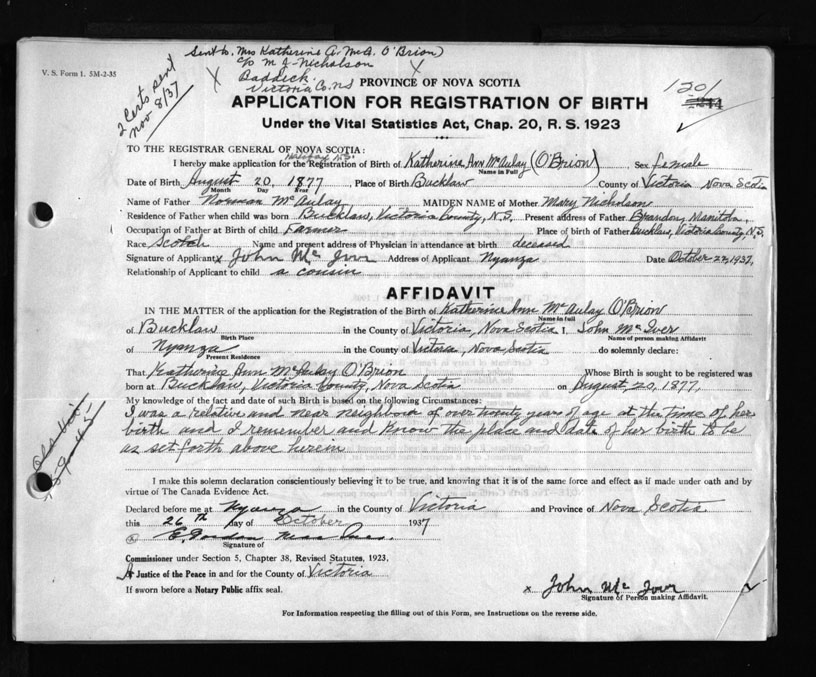 Sent to Mrs Katherine A. McA. O'Brion)
c/o M J Nicholson
X Baddeck X
Victoria Co. NS
V. S. Form 1. 5M-2-35
2 Certs sent
Nov 8/37
PROVINCE OF NOVA SCOTIA
1201
APPLICATION FOR REGISTRATION OF BIRTH
Under the Vital Statistics Act, Chap. 20, R. S. 1923
TO THE REGISTRAR GENERAL OF NOVA SCOTIA:
I hereby make application for the Registration of Birth of Katherine Ann McAulay (O'Brion) Sex female
Name in Full
Date of Birth August 20, 1877, Place of Birth Bucklaw County of Victoria Nova Scotia
Month Day Year
Name of Father Norman McAulay MAIDEN NAME of Mother Mary Nicholson
Residence of Father when child was born Bucklaw, Victoria County, N.S. Present address of Father Brandon, Manitoba.
Occupation of Father at Birth of child Farmer Place of birth of Father Bucklaw, Victoria County, N.S.
Race Scotch Name and present address of Physician in attendance at birth deceased
Signature of Applicant x John Mc Iver Address of Applicant Nyanza Date October 22, 1937.
Relationship of Applicant to child a cousin
AFFIDAVIT
IN THE MATTER of the application for the Registration of the Birth of Katherine Ann McAulay O'Brion
Name in full
of Bucklaw in the County of Victoria, Nova Scotia I, John McIver
Birth Place Name of person making Affidavit
of Nyanza in the County of Victoria, Nova Scotia do solemnly declare:
Present Residence
That Katherine Ann McAulay O'Brion Whose Birth is sought to be registered was
born at Bucklaw, Victoria County, Nova Scotia on August, 20, 1877,
My knowledge of the fact and date of such Birth is based on the following Circumstances:
I was a relative and near neighbour of over twenty years of age at the time of her
birth and I remember and know the place and date of her birth to be
as set forth above herein
I make this solemn declaration conscientiously believing it to be true, and knowing that it is of the same force and effect as if made under oath and by
virtue of The Canada Evidence Act.
Declared before me at Nyanza in the County of Victoria and Province of Nova Scotia
this 26th day of October 1937
E. Gordon
Signature of
Commissioner under Section 5, Chapter 38, Revised Statutes, 1923,
A Justice of the Peace in and for the County of Victoria
If sworn before a Notary Public affix seal.
x John Mc Iver
Signature of Person making Affidavit.
For Information respecting the filling out of this Form, see Instructions on the reverse side.